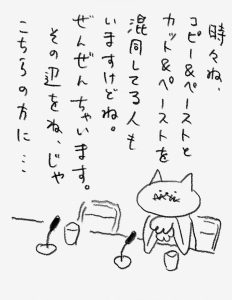 時々ね、
コピー&ペーストと
カット&ペーストを
混同してる人も
いますけどね。
ぜんぜんちゃいます。
その辺をね、じゃ
こちらの方に…